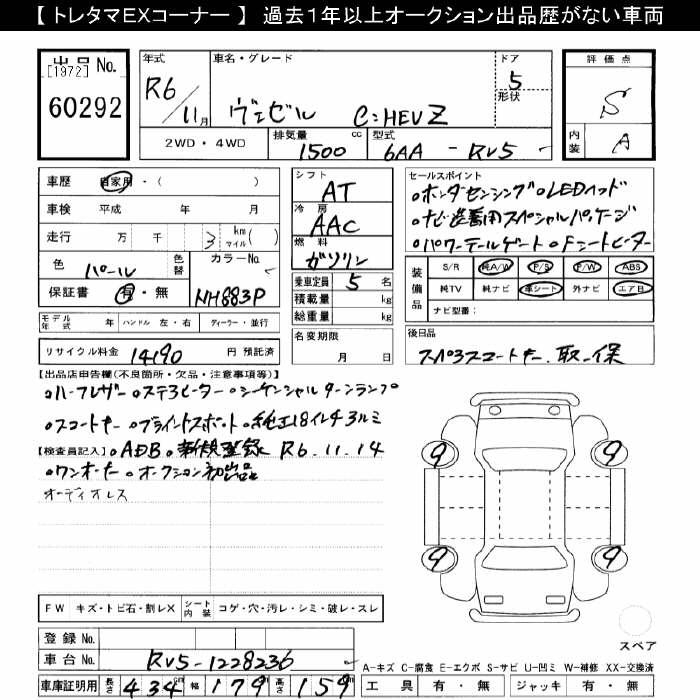 【 トレタマEXコーナー 】 過去1年以上オークション出品歴がない車両
出品 No.
【1972】
60292
年式
R6
11月
車名・グレード
ヴェゼル e:HEV Z
ドア
5
形状
2WD・4WD
排気量
1500 cc
型式
6AA - RV5
評価点
S
内装
A
車歴 自家用・( )
車検 平成 年 月
走行 万 千 3 km マイル ( )
色 パール
色替
カラーNo.
NH883P
保証書 有・無
シフト
AT
冷房
AAC
燃料
ガソリン
乗車定員 5 名
積載量 kg
総重量 kg
名変期限
月 日
セールスポイント
・ホンダセンシング・LEDヘッド
・ナビ装着用スペシャルパッケージ
・パワーテールゲート・Fシートヒーター
装備品
S/R 純A/W P/S P/W ABS
純TV 純ナビ 革シート 外ナビ エアB
ナビ型番:
モデル年式 年 ハンドル 左・右 ディーラー・並行
リサイクル料金 14190 円 預託済
後日品
スペアスマートキー. 取. 保
【出品店申告欄(不良箇所・欠品・注意事項等)】
・ハーフレザー・ステアヒーター・シーケンシャルターンランプ
・スマートキー・ブラインドスポット・純正18インチアルミ
【検査員記入】・ADB・新規登録 R6.11.14
・ワンオーナー・オークション初出品
オーディオレス
FW キズ・トビ石・割レX シート内装 コゲ・穴・汚レ・シミ・破レ・スレ
9
9
9
9
スペア
登録No.
車台No. RV5-1228236
A-キズ C-腐食 E-エクボ S-サビ U-凹ミ W-補修 XX-交換済
車庫証明用 長さ 434 cm 幅 179 高さ 159
工具 有・無 ジャッキ 有・無